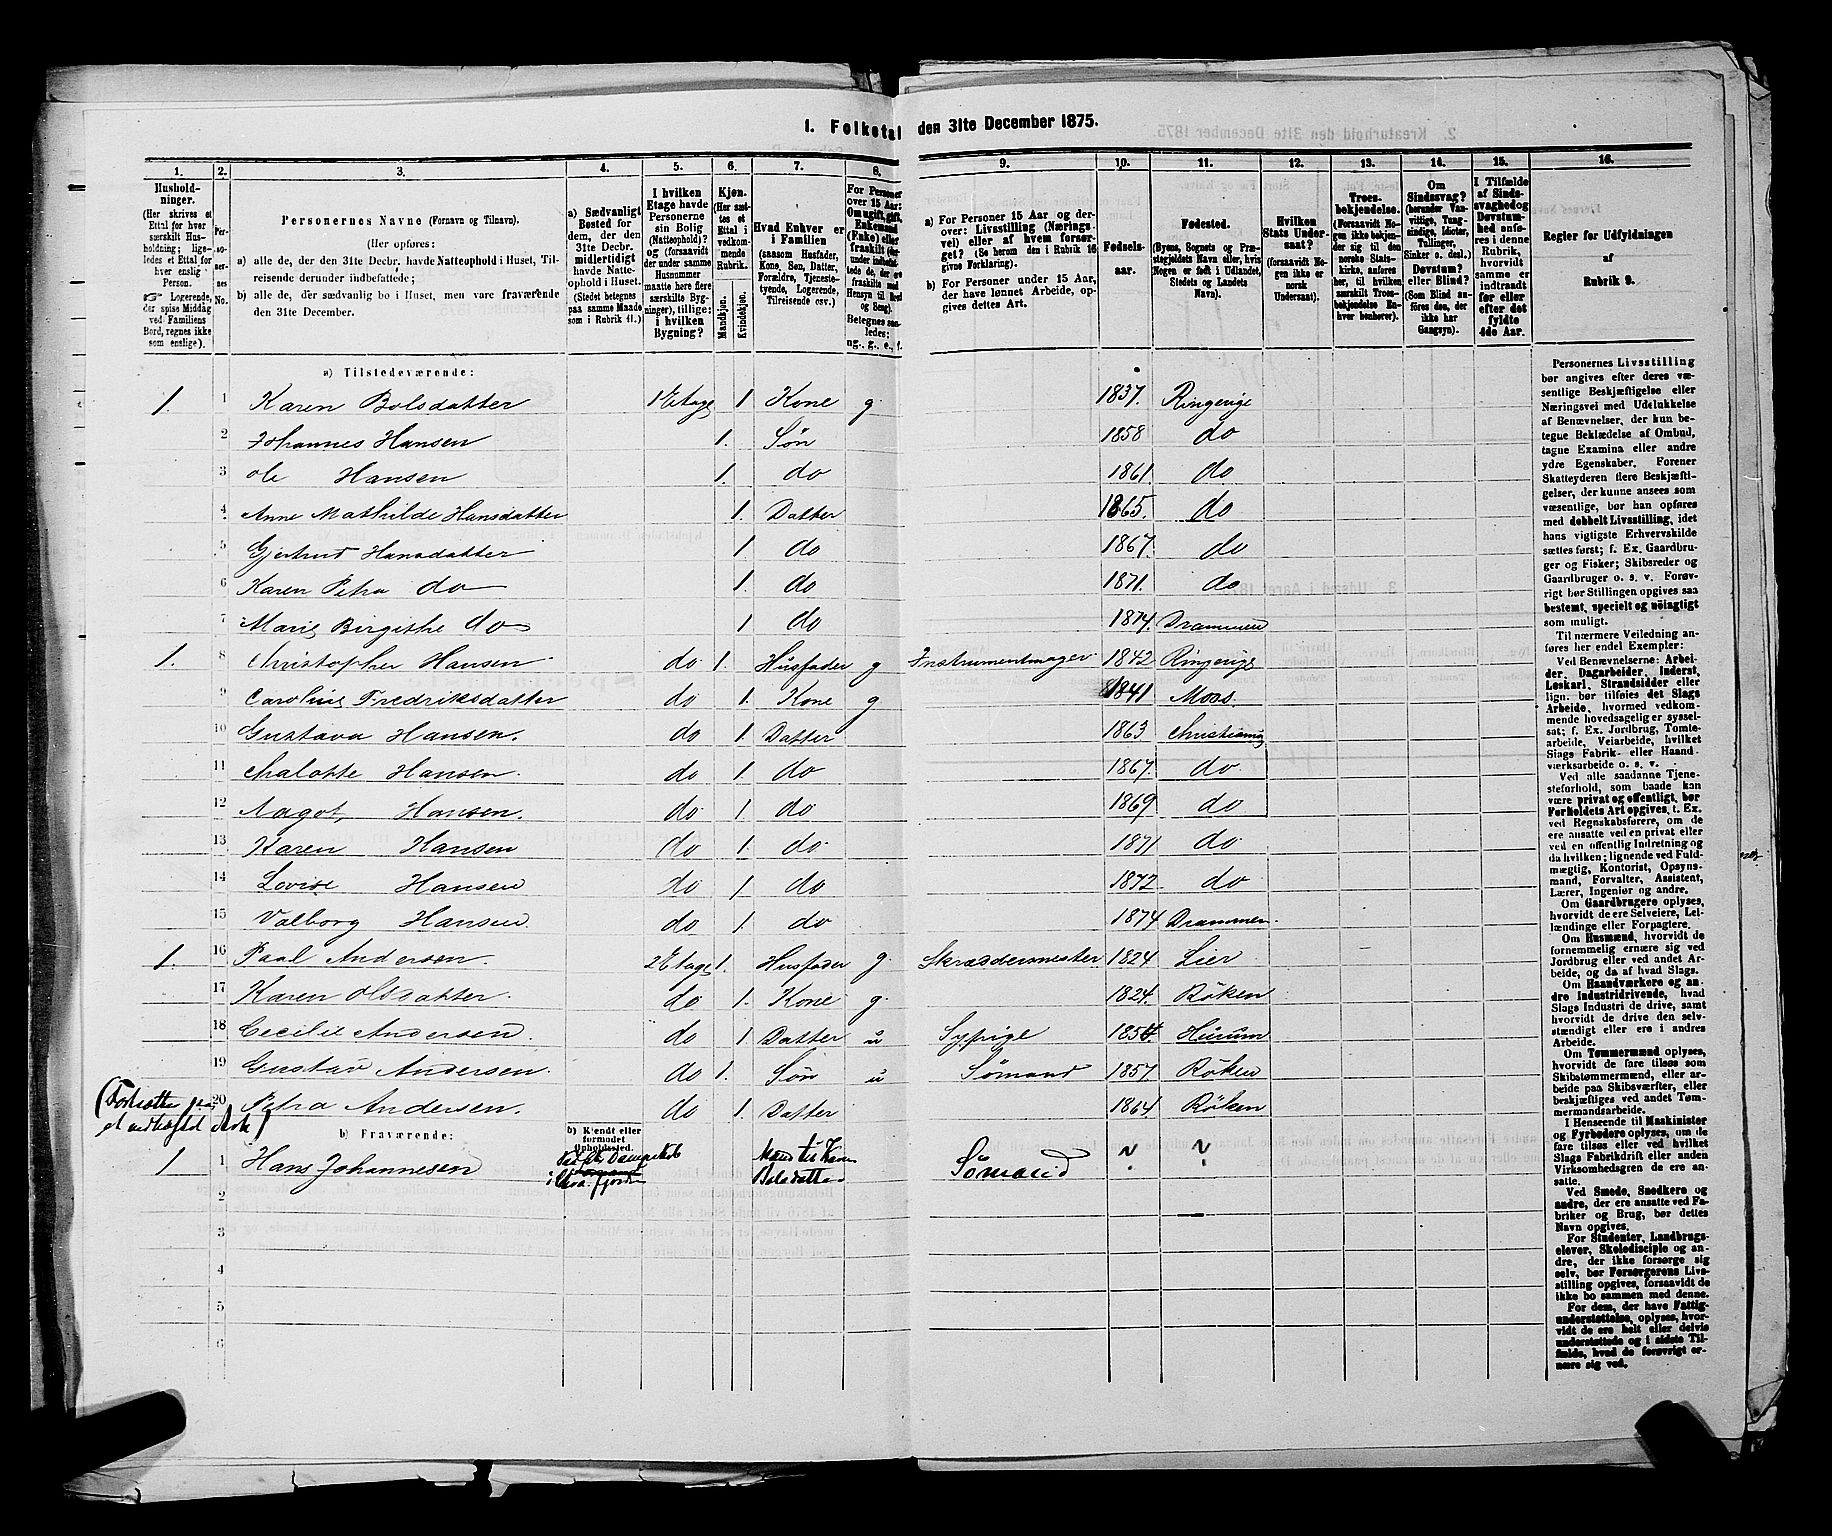 1. Folketal den 31te December 1875.
1. 2. 3. 4. 5. 6. 7. 8. 9. 10. 11. 12. 13. 14. 15. 16.
Hushold-
ninger.
(Her skrives et
Ettal for hver
særskilt Hus-
holdning; lige-
ledes et Ettal for
hver enslig
Person.
☞ Logerende,
der spise Middag
ved Familiens
Bord, regnes ikke
som enslige).
Per-
so-
ner-
nes
No.
Personernes Navne (Fornavn og Tilnavn).
(Her opføres:
a) alle de, der den 31te Decbr. havde Natteophold i Huset, Til-
reisende derunder indbefattede;
b) alle de, der sædvanlig bo i Huset, men vare fraværende
den 31te December.
a) Sædvanligt
Bosted for
dem, der den
31te Decbr.
midlertidigt
havde Natte-
ophold i Huset.
(Stedet betegnes
paa samme Maade
som i Rubrik 11.)
I hvilken
Etage havde
Personerne
sin Bolig
(Natteophold)?
(forsaavidt
der under samme
Husnummer
maatte høre flere
særskilte Byg-
ninger), tillige:
i hvilken
Bygning?
Kjøn.
(Her sæt-
tes et
Ettal i
vedkom-
mende
Rubrik.
Mandkjøn.
Kvindekjøn.
Hvad Enhver er
i Familien
(saasom Husfader,
Kone, Søn, Datter,
Forældre, Tjeneste-
tyende, Logerende,
Tilreisende osv.)
For Personer
over 15 Aar:
Om ugift, gift,
Enkemand
(Enke) eller
fraskilt
Betegnes saa-
ledes:
ug., g., e., f.
a) For Personer 15 Aar og der-
over: Livsstilling (Nærings-
vei) eller af hvem forsør-
get? (Se herom den i Rubrik 16
givne Forklaring).
b) For Personer under 15 Aar,
der have lønnet Arbeide, op-
gives dettes Art.
Fødsels-
aar.
Fødested.
(Byens, Sognets og Præ-
stegjeldets Navn eller, hvis
Nogen er født i Udlandet,
Stedets og Landets
Navn).
Hvilken
Stats Under-
saat?
(forsaavidt No-
gen ikke er
norsk
Undersaat).
Troes-
bekjendelse.
(Forsaavidt No-
gen ikke bekjen-
der sig til den
norske Stats-
kirke, anføres
her, til hvilken
særskilt Troes-
bekjendelse En-
hver henhører).
Om
Sindssvag?
(herunder Van-
vittige, Tung-
sindige, Idioter,
Tullinger,
Sinker o. desl.)
Døvstum?
eller Blind?
(Som Blind an-
føres den, der
ikke har
Gangsyn).
I Tilfælde
af Sinds-
svaghed og
Døvstum-
hed anfø-
res i denne
Rubrik,
hvorvidt
samme er
indtraadt
før eller
efter det
fyldte
4de Aar.
Regler for Udfyldningen
af
Rubrik 9.
a) Tilstedeværende:
1. 1 Karen Bolsdatter 1 Etage 1 Kone g 1837. Ringerige
2 Johannes Hansen 1. Søn 1858 do
3 Ole Hansen 1. do 1861. do
4 Anne Mathilde Hansdatter 1. Datter 1865. do
5 Gjertrud Hansdatter 1. do 1867. do
6 Karen Petra do 1. do 1871. do
7 Marie Birgithe do 1 do 1874. Drammen
1. 8 Christopher Hansen do 1. Husfader g Instrumentmager 1842 Ringerige
9 Caroline Fredriksdatter do 1. Kone g 1841 Moss.
10 Gustava Hansen. do 1. Datter 1863 Christiania
11 Chalotte Hansen. do 1. do 1867. do
12 Aagot, Hansen. do 1 do 1869 do
13 Karen Hansen do 1. do 1871 do
14 Lovise Hansen do 1 do 1872 do
15 Valborg Hansen do 1. do 1874 Drammen.
1. 16 Paal Andersen 2 Etage 1. Husfader g. Skræddermester 1824 Lier
17 Karen Olsdatter. do 1. Kone g. 1824. Röken
18 Cecilie Andersen. do 1 Datter u Sypige 1854. Hurum
19 Gustav Andersen. do 1. Søn u Sømand 1857 Röken
20 Petra Andersen. do 1. Datter 1864 Röken
(Fortsættes paa
et vedhæftet Ark)
b) Fraværende:
b) Kjendt eller
formodet
Opholdssted.
1 1 Hans Johannesen Mand til Karen
Bolsdatter Sømand ? ?
2
3
4
5
6
Personernes Livsstilling
bør angives efter deres væ-
sentlige Beskjæftigelse eller
Næringsvei med Udelukkelse
af Benævnelser, der kun be-
tegne Beklædelse af Ombud,
tagne Examina eller andre
ydre Egenskaber. Forener
Skatteyderen flere Beskjæfti-
gelser, der kunne ansees som
væsentlige, bør han opføres
med dobbelt Livsstilling, idet
hans vigtigste Erhvervskilde
sættes først; f. Ex. Gaardbru-
ger og Fisker; Skibsreder og
Gaardbruger o. s. v. Forøv-
rigt bør Stillingen opgives saa
bestemt, specielt og nöiagtigt
som muligt.
Til nærmere Veiledning an-
føres her endel Exempler:
Ved Benævnelserne: Arbei-
der, Dagarbeider, Inderst,
Løskarl, Strandsidder eller
lign. bør tilføies det Slags
Arbeide, hvormed vedkom-
mende hovedsagelig er syssel-
sat; f. Ex. Jordbrug, Tomte-
arbeide, Veiarbeide, hvilket
Slags Fabrik- eller Haand-
værksarbeide o. s. v.
Ved alle saadanne Tjene-
steforhold, som baade kan
være privat og offentligt, bør
Forholdets Art opgives, t. Ex.
ved Regnskabsførere, om de
ere ansatte ved en privat eller
ved en offentlig Indretning og
da hvilken; lignende ved Fuld-
mægtig, Kontorist, Opsyns-
mand, Forvalter, Assistent,
Lærer, Ingeniør og andre.
Om Gaardbrugere oplyses,
hvorvidt de ere Selveiere, Lei-
lændinge eller Forpagtere.
Om Husmænd, hvorvidt de
fornemmelig ernære sig ved
Jordbrug eller ved andet Ar-
beide, og da af hvad Slags.
Om Haandværkere og an-
dre Industridrivende, hvad
Slags Industri de drive, samt
hvorvidt de drive den selv-
stændigt eller ere i andres
Arbeide.
Om Tømmermænd oplyses,
hvorvidt de fare tilsøs som
Skibstømmermænd, eller ar-
beide paa Skibsværfter, eller
beskjæftiges ved andet Tøm-
mermandsarbeide.
I Henseende til Maskinister
og Fyrbødere oplyses, om de
fare tilsøs eller ved hvilket
Slags Fabrikdrift eller anden
Virksomhedsgren de ere an-
satte.
Ved Smede, Snedkere og
andre, der ere ansatte ved Fa-
briker og Brug, bør dettes
Navn opgives.
For Studenter, Landbrugs-
elever, Skoledisciple og an-
dre, der ikke forsørge sig
selv, bør Forsørgerens Livs-
stilling opgives, forsaavidt de
ikke bo sammen med denne.
For dem, der have Fattig-
understøttelse, oplyses, hvor-
vidt de ere helt eller delvis
understøttede og i sidste Til-
fælde, hvad de forøvrigt er-
nære sig ved.